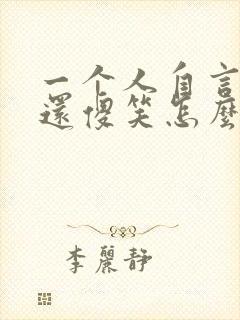 一个人自言
還傻笑怎麼
李麗静